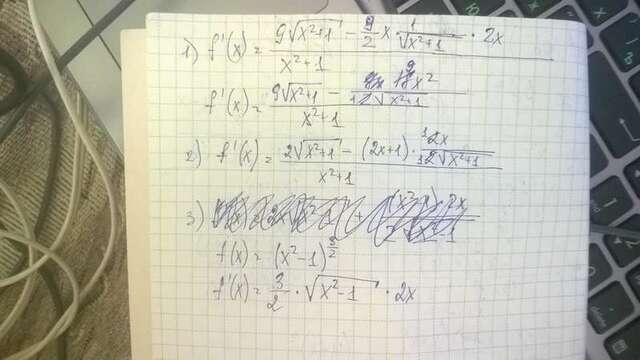 1) f'(x) = (9√(x²+1) - 9/2 x · 1/√(x²+1) · 2x)/(x²+1)
f'(x) = (9√(x²+1) - 9x²/√(x²+1))/(x²+1)
2) f'(x) = (2√(x²+1) - (2x+1) · 2x/(2√(x²+1)))/(x²+1)
3)
f(x) = (x²-1)^(3/2)
f'(x) = 3/2 · √(x²-1) · 2x